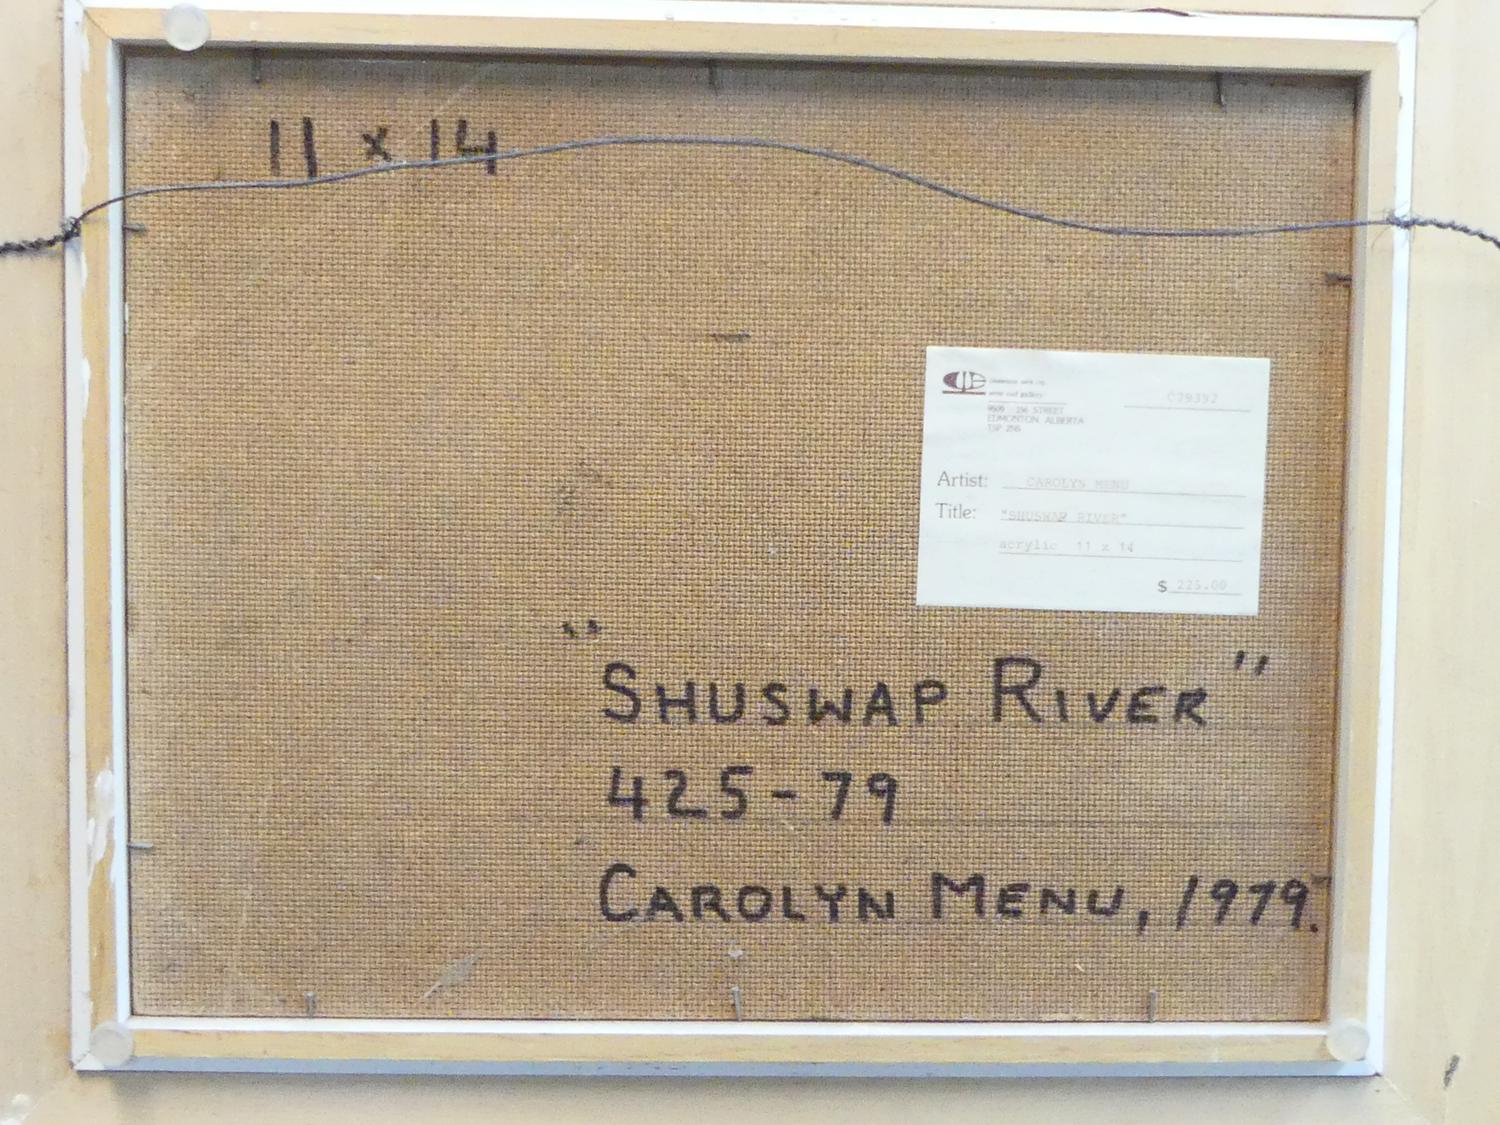 11 x 14
C79392
EDMONTON ALBERTA
Artist: CAROLYN MENU
Title: "SHUSWAP RIVER"
acrylic 11 x 14
$ 225.00
"SHUSWAP RIVER"
425-79
CAROLYN MENU, 1979.